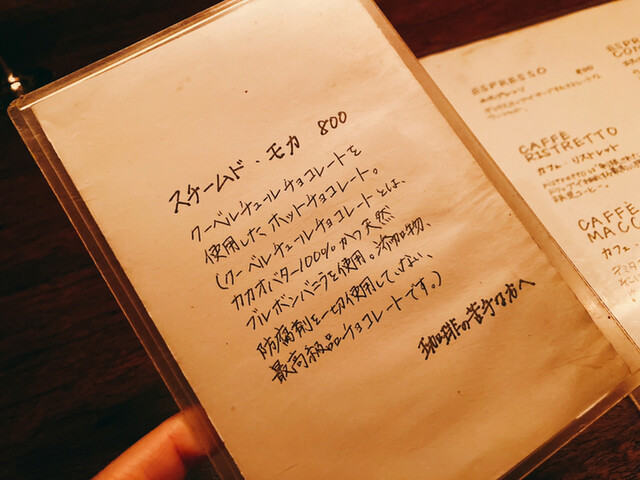 スチームド・モカ 800
クーベルチュールチョコレートを
使用したホットチョコレート。
(クーベルチュールチョコレートとは、
カカオバター100%かつ天然
ブルボンバニラを使用。添加物、
防腐剤を一切使用していない、
最高級品チョコレートです。)
珈琲の苦手な方へ
ESPRESSO 800
CAFFÈ
RISTRETTO
カフェ・リストレット
CAFFÈ
MACC
カフェ
ESPR
CON